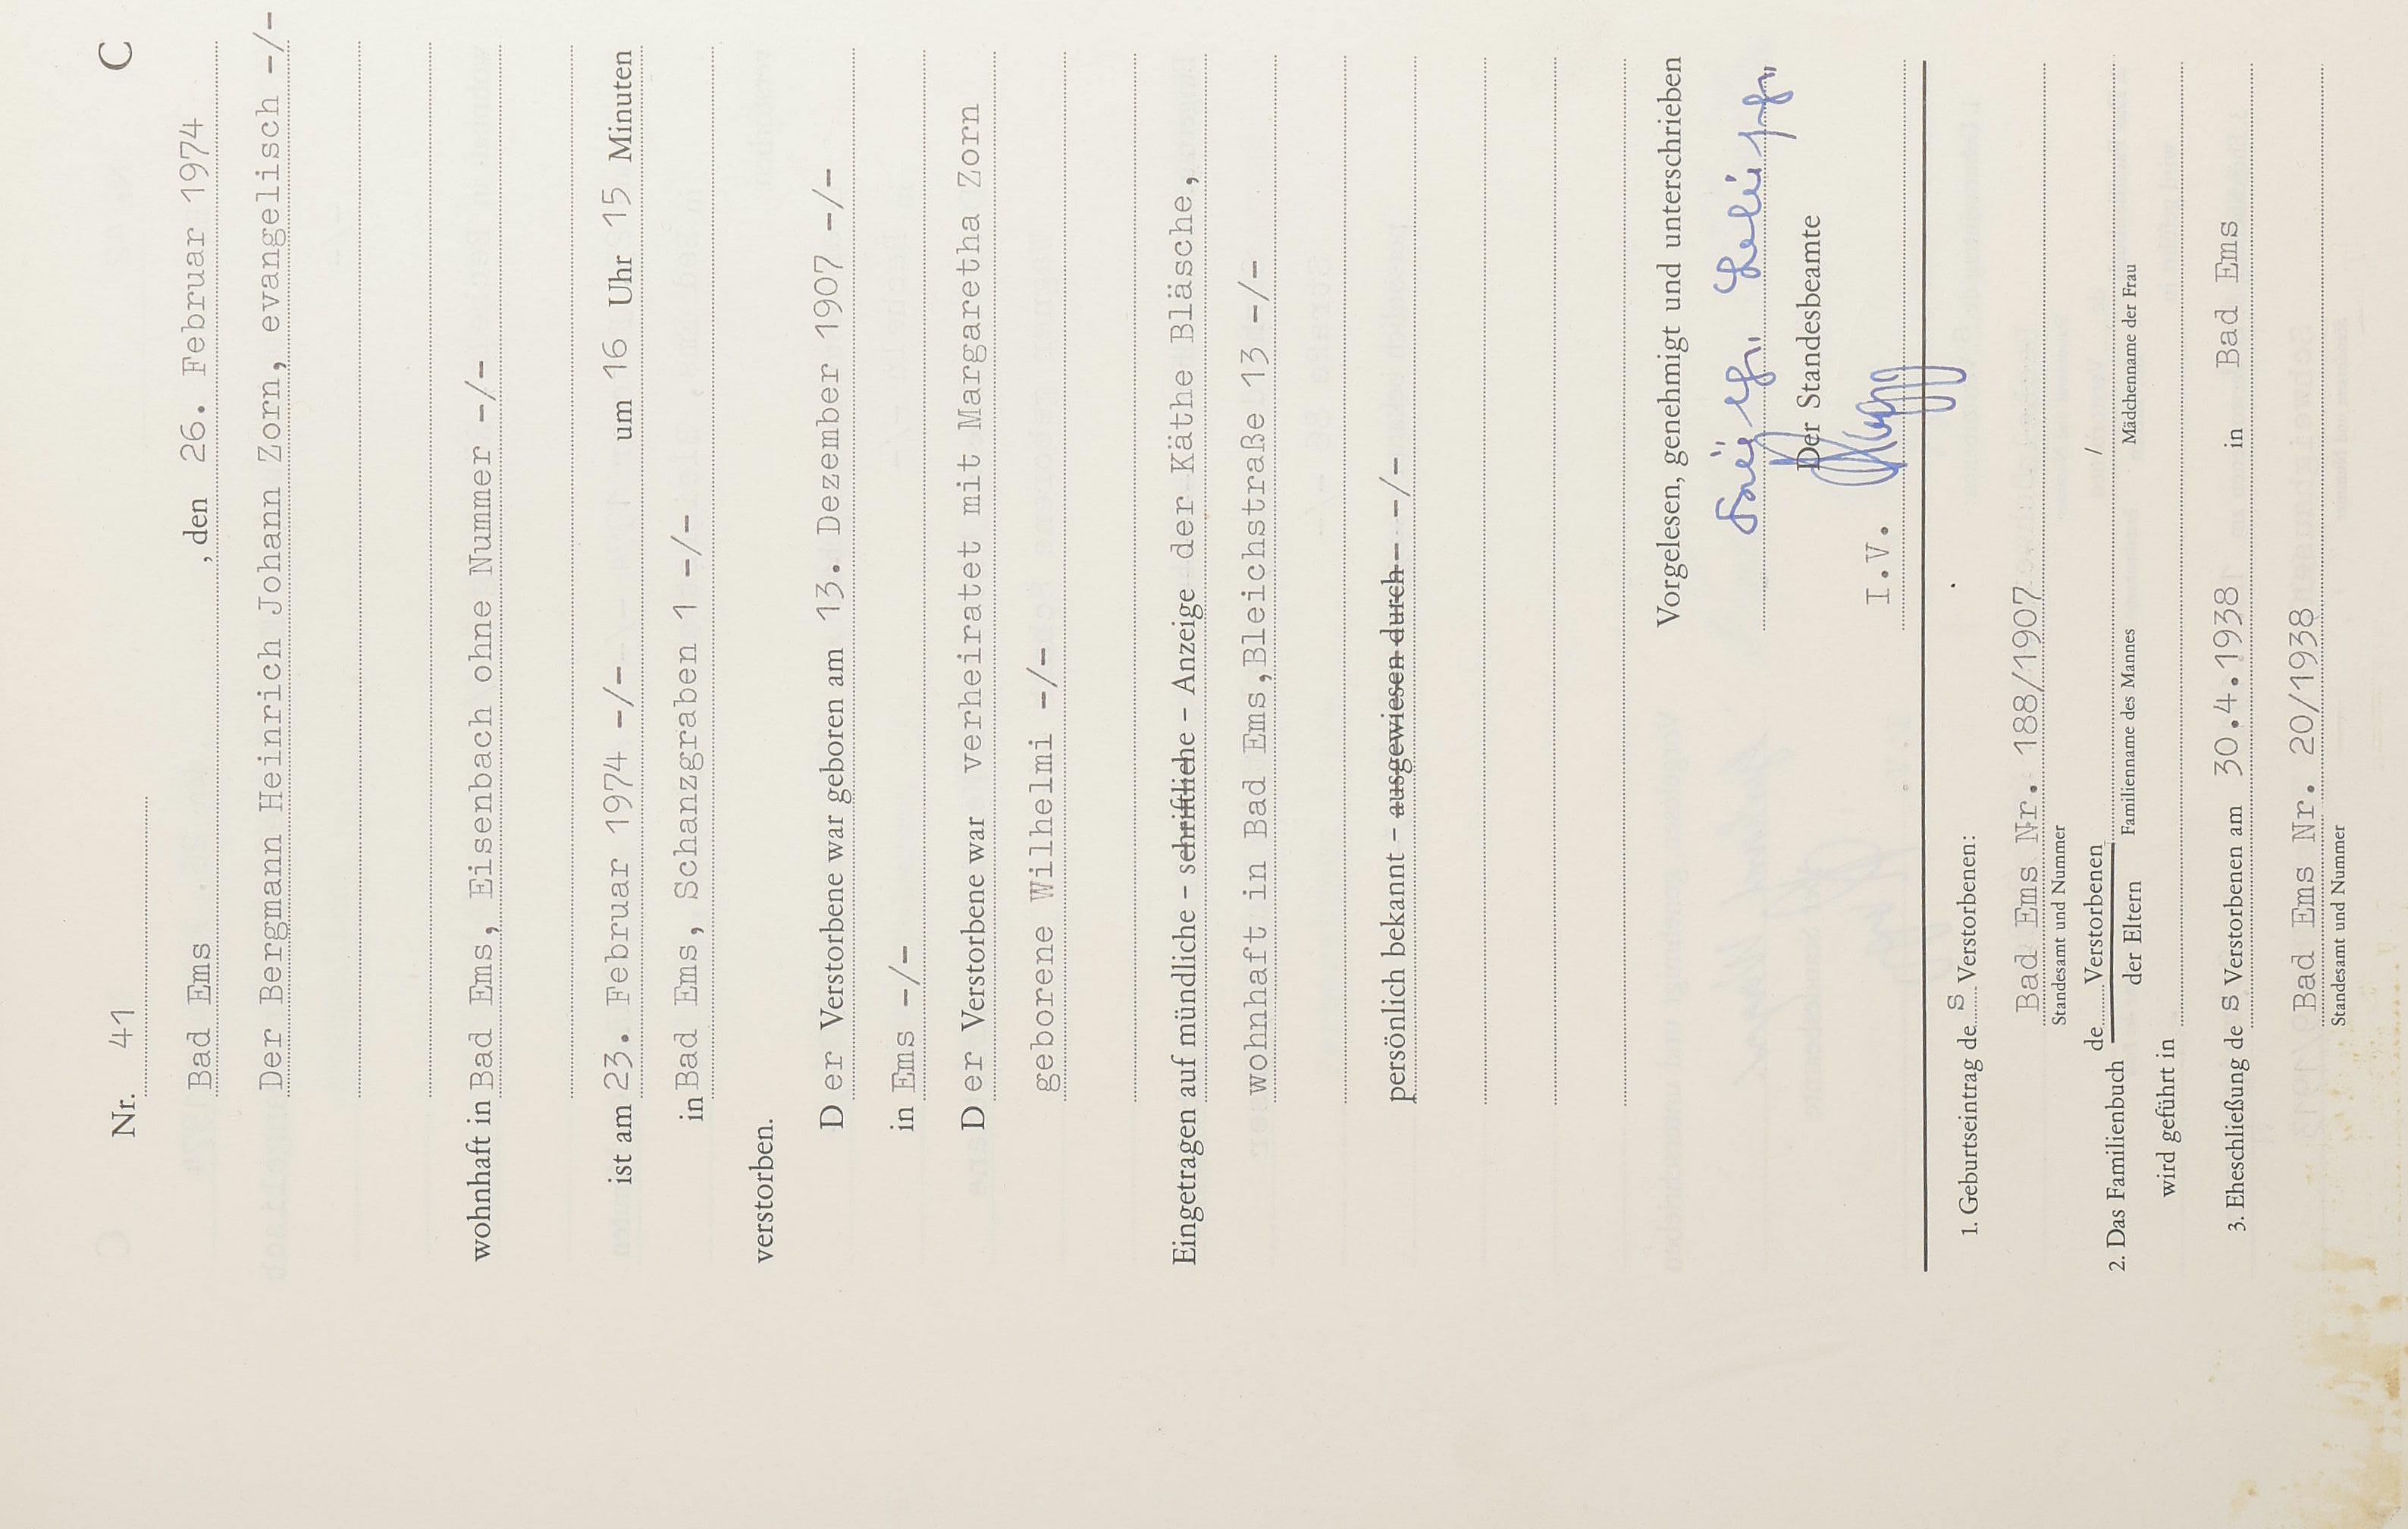 C
Nr. 41
Bad Ems , den 26. Februar 1974
Der Bergmann Heinrich Johann Zorn, evangelisch -/-
wohnhaft in Bad Ems, Eisenbach ohne Nummer -/-
ist am 23. Februar 1974 -/- um 16 Uhr 15 Minuten
in Bad Ems, Schanzgraben 1 -/-
verstorben.
D er Verstorbene war geboren am 13. Dezember 1907 -/-
in Ems -/-
D er Verstorbene war verheiratet mit Margaretha Zorn
geborene Wilhelmi -/-
Eingetragen auf mündliche - schriftliche - Anzeige der Käthe Bläsche,
wohnhaft in Bad Ems,Bleichstraße 13 -/-
persönlich bekannt - ausgewiesen durch - -/-
Vorgelesen, genehmigt und unterschrieben
Der Standesbeamte
I.V.
1. Geburtseintrag de s Verstorbenen:
Bad Ems Nr. 188/1907
Standesamt und Nummer
2. Das Familienbuch de Verstorbenen /
der Eltern Familienname des Mannes Mädchenname der Frau
wird geführt in
3. Eheschließung de s Verstorbenen am 30.4.1938 in Bad Ems
Bad Ems Nr. 20/1938
Standesamt und Nummer